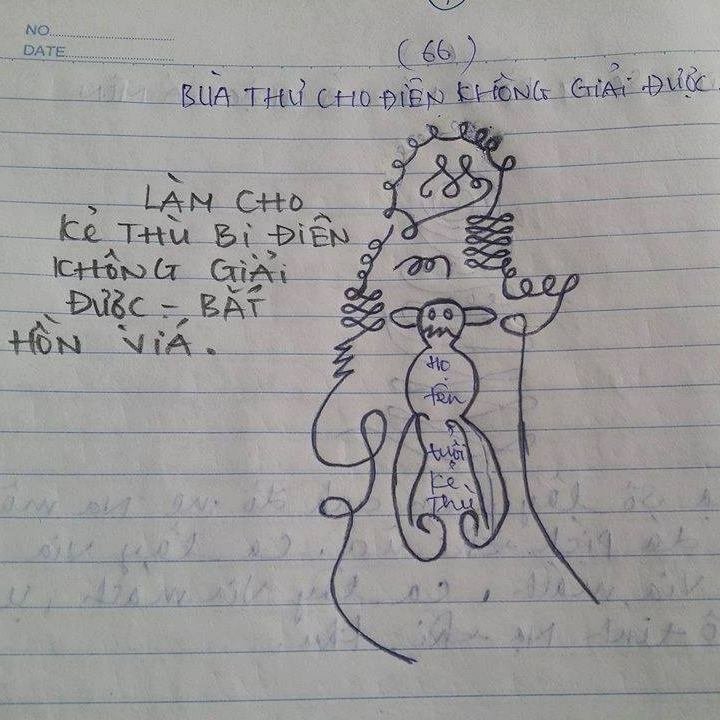 NO.
DATE
(66)
BÙA THƯ CHO ĐIÊN KHÔNG GIẢI ĐƯỢC
LÀM CHO
KẺ THÙ BỊ ĐIÊN
KHÔNG GIẢI
ĐƯỢC - BẮT
HỒN VIÁ.
HỌ
tên
tuổi
KẺ
THÙ